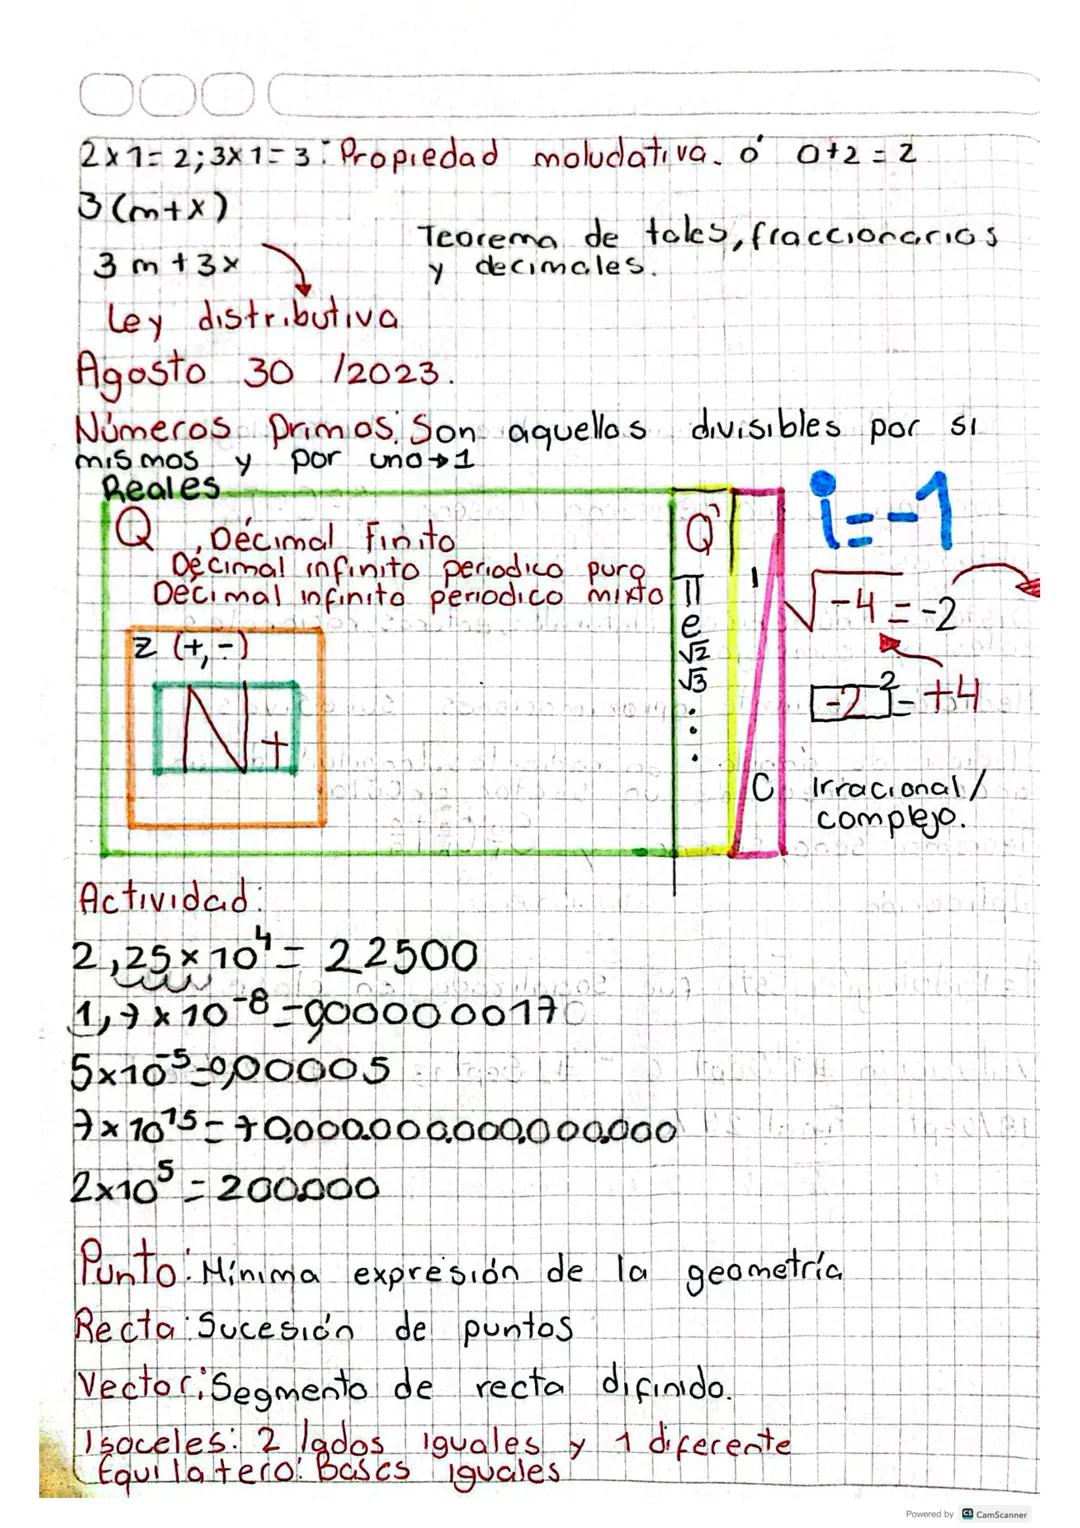 2x1=2; 3x1=3: Propiedad moludativa. ó 0+2=2
3(m+x)
3m+3x
Teorema de tales, fraccionarios
y decimales.
Ley distributiva
Agosto 30 /2023.
Números primos: Son aquellos divisibles por si
mismos y por uno→1
Reales
Q , Décimal Finito
Décimal infinito periodico puro
Décimal infinito periodico mixto
Z (+,-)
N+
Q'
π
e
√2
√3
.
.
.
I
C
i=-1
√-4=-2
-2²=+4
Irracional/
complejo.
Actividad:
2,25x10⁴=22500
1,7x10⁻⁸=0,000000017
5x10⁻⁵=0,00005
7x10¹⁵=70.000.000.000.000.000
2x10⁵=200.000
Punto: Mínima expresión de la geometría
Recta: Sucesión de puntos
Vector: Segmento de recta difinido.
Isoceles: 2 lados iguales y 1 diferente
Equilatero: Bases iguales
Powered by CS CamScanner